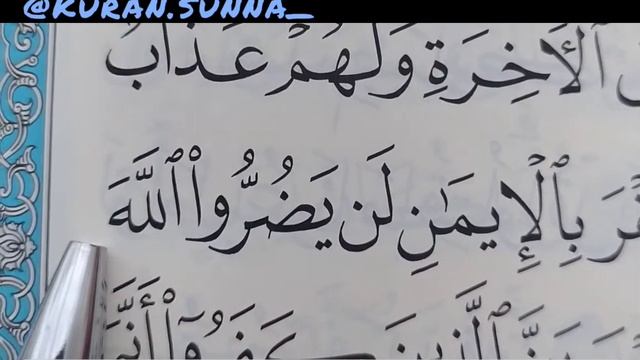 @KURAN.SUNNA_
ٱلْأَخِرَةِ وَلَهُمْ عَذَابٌ
بِٱلْإِيمَٰنِ لَن يَضُرُّوا۟ ٱللَّهَ
ٱلَّذِينَ كَفَرُوٓا۟ أَنَّمَا